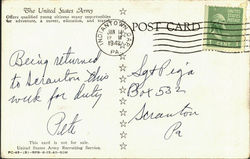 The United States Army
Offers qualified young citizens many opportunities
for adventure, a career, education, and
POST CARD
JAN 14
1942
PA.
Being returned
to Scranton this
week for duty
Pete
Sgt
Box 532
Scranton
Pa
This card is not for sale.
United States Army Recruiting Service.